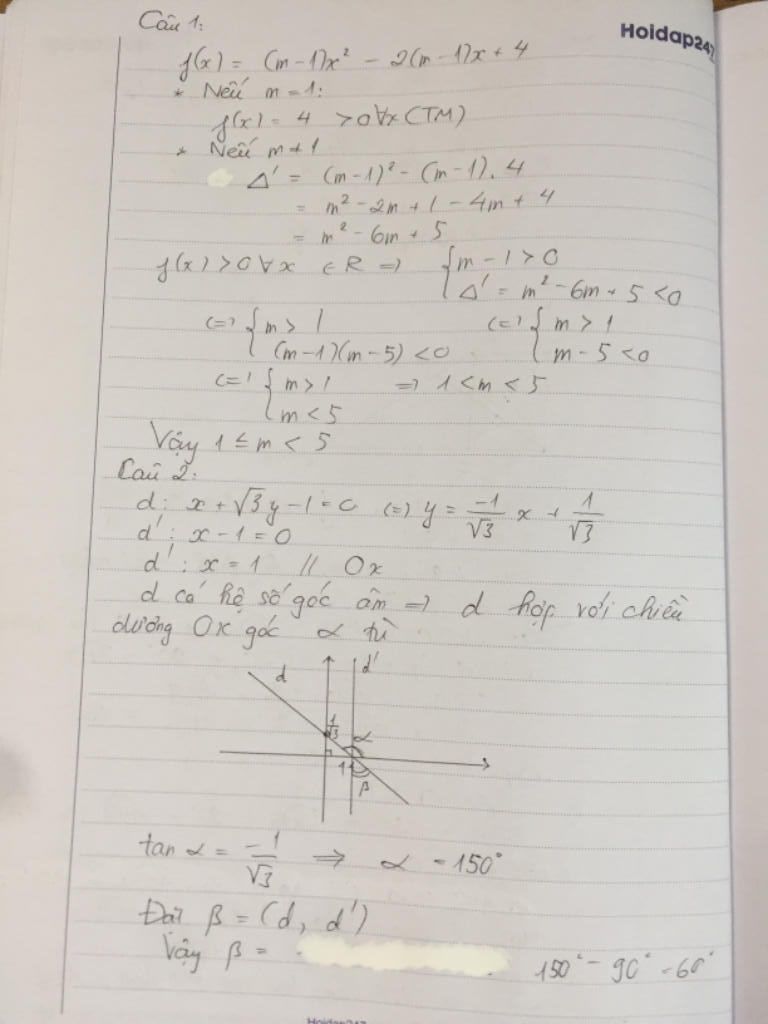 Câu 1:
Hoidap247
f(x) = (m-1)x² - 2(m-1)x + 4
* Nếu m = 1:
f(x) = 4 > 0 ∀x (TM)
* Nếu m ≠ 1
Δ' = (m-1)² - (m-1).4
= m² - 2m + 1 - 4m + 4
= m² - 6m + 5
f(x) > 0 ∀x ∈ R => { m - 1 > 0
Δ' = m² - 6m + 5 < 0
<=> { m > 1 <=> { m > 1
(m-1)(m-5) < 0 m - 5 < 0
<=> { m > 1 => 1 < m < 5
m < 5
Vậy 1 ≤ m < 5
Câu 2:
d: x + √3y - 1 = 0 <=> y = -1/√3 x + 1/√3
d': x - 1 = 0
d': x = 1 // Ox
d có hệ số góc âm => d hợp với chiều
dương Ox góc α tù
d d'
1/√3 α
1 β
tan α = -1/√3 => α = 150°
Đặt β = (d, d')
Vậy β = 150° - 90° = 60°